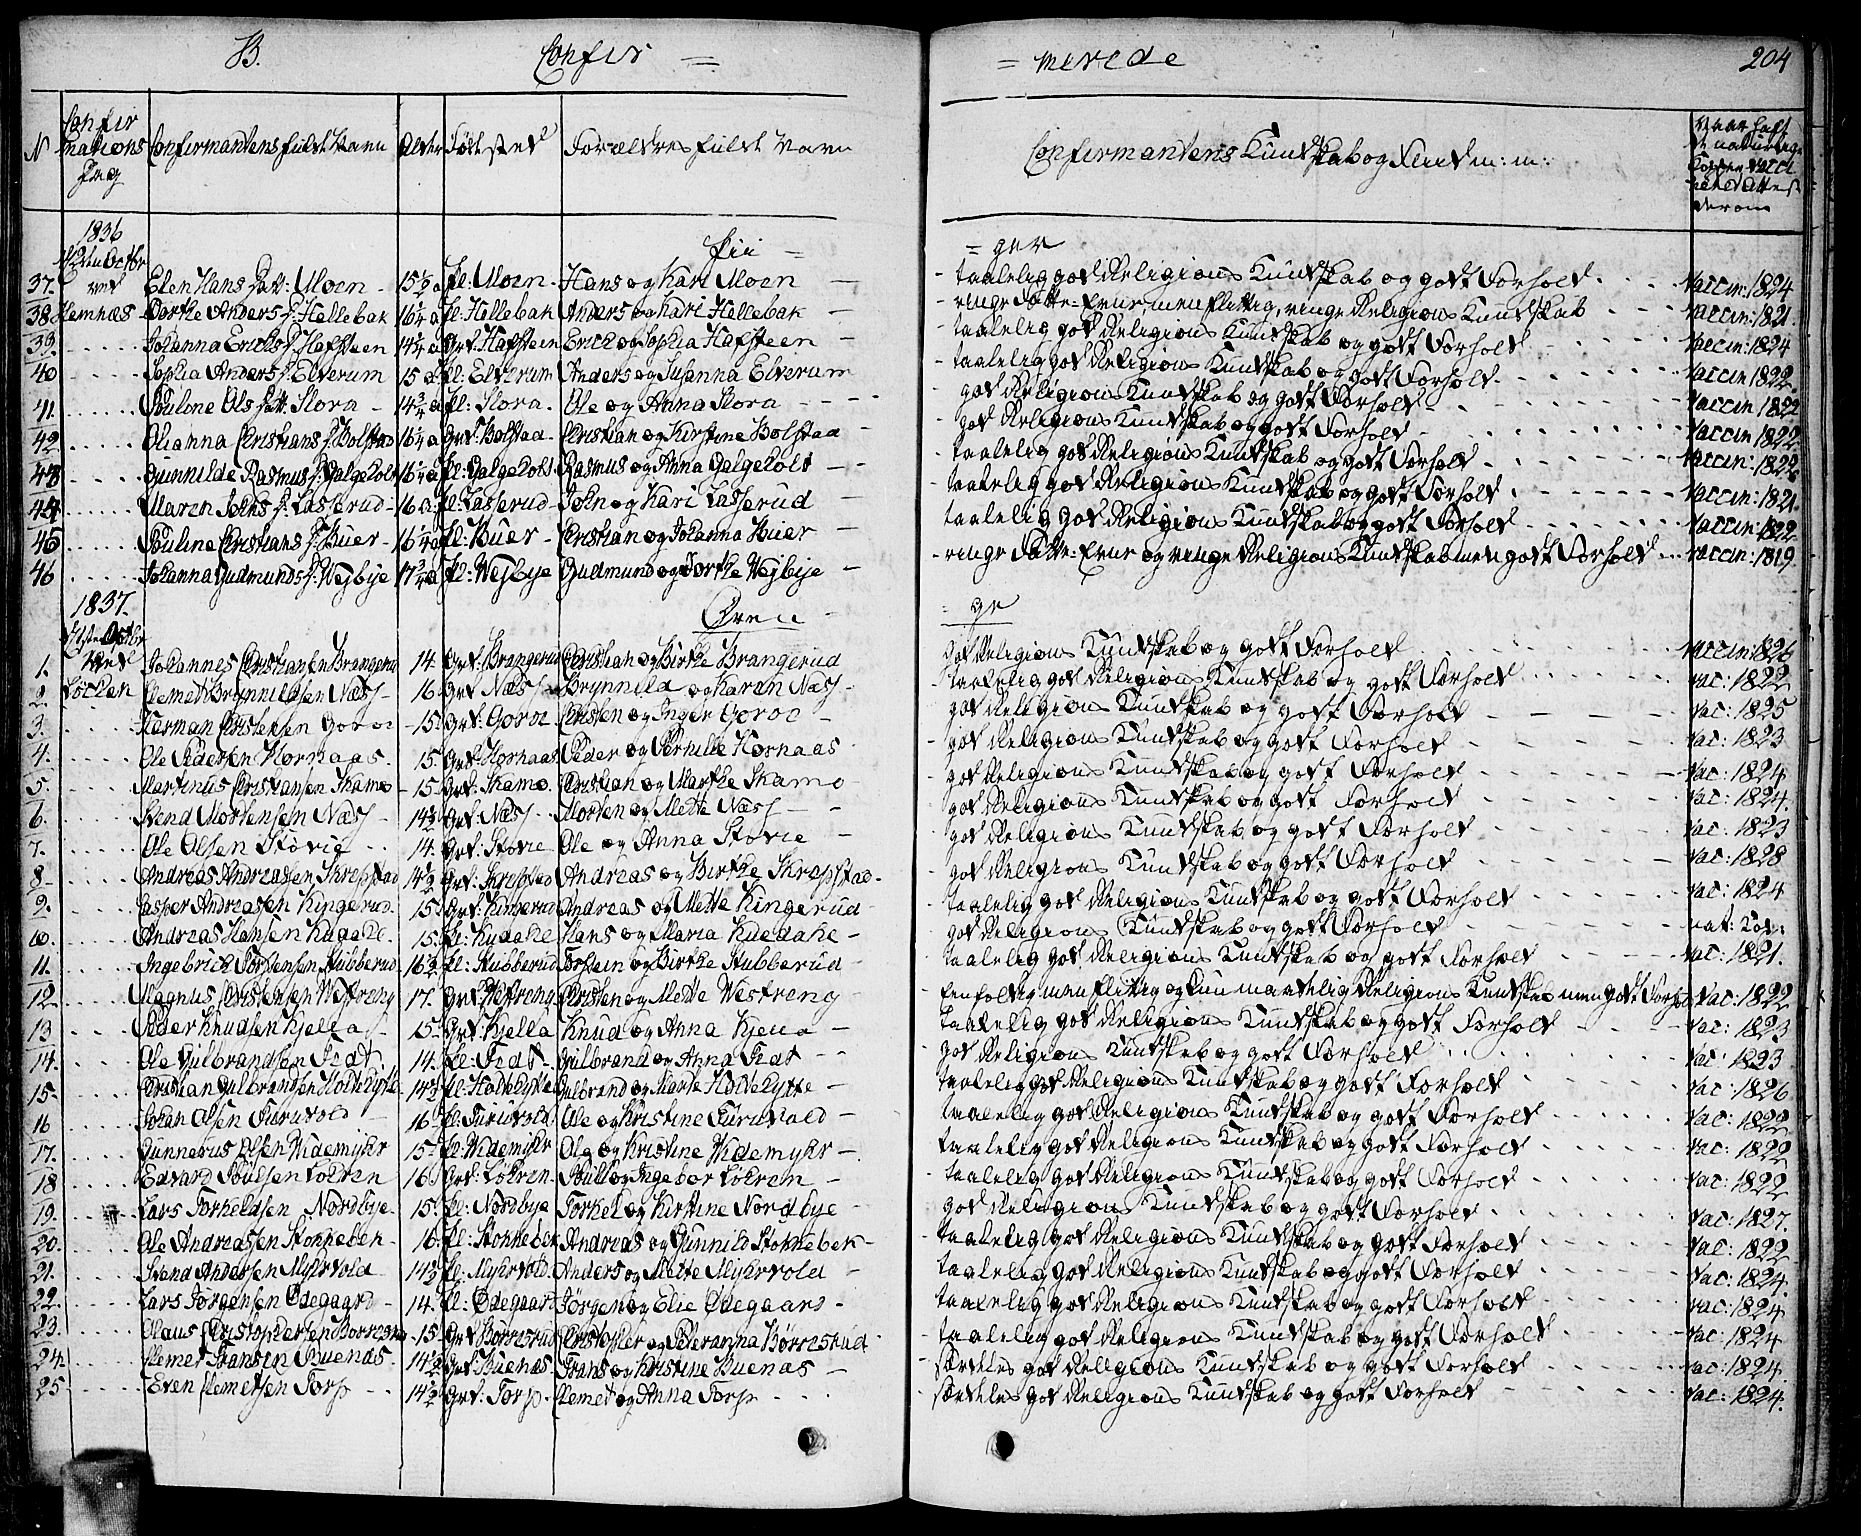 B. Confir = = merede 204
N Confirmations Dag Confirmantens fulde Navn Alder Fødested Forældres fulde Navn Confirmantens Kundskab og Fliid m: m:
1836 Pii = = ger
37. Elen Hans Datt: Moen - 15 1/2 a Pl: Moen - Hans og Kari Moen - taalelig god Religions Kundskab og godt Forhold Vaccin: 1824
38. Hemnæs Dorthe Anders D: Hallebak 16 1/4 a Pl: Hallebak Anders og Kari Hallebak - ringe Fatte-Evne, men flittig, ringe Religions Kundskab Vaccin: 1821.
39 Johanna Erichs D: Hafsteen 14 1/4 a Grt: Hafsteen Erich og Sophia Hafsteen - taalelig god Religions Kundskab og godt Forhold Vaccin: 1824
40 Sophia Anders D: Elverum 15 a Pl: Elverum Anders og Susanna Elverum taalelig god Religions Kundskab og godt Forhold Vaccin 1822.
41. Pouline Ols Datt: Slora - 14 3/4 a Pl: Slora. Ole og Anna Slora god Religions Kundskab og godt Forhold Vaccin 1822
42 Olianna Christians D: Bolstad 16 1/4 a Grt: Bolstad - Christian og Kirstine Bolstad - god Religions Kundskab og godt Forhold Vaccin 1822
43 Gunnilde Rasmus D: Galgeholt 16 1/4 a Pl: Galgeholt Rasmus og Anna Galgeholt - taalelig god Religions Kundskab og godt Forhold Vaccin: 1822
44. Maren Johns D: Lasserud - 16 a. Pl: Lasserud - John og Kari Lasserud - taalelig god Religions Kundskab og godt Forhold Vaccin: 1821.
45 Pouline Christians D: Buer - 16 1/4 a Pl: Buer - Christian og Johanna Buer - taalelig god Religions Kundskab og godt Forhold Vaccin: 1822
46 Johanna Gudmunds D: Wejbye 17 3/4 a Pl: Wejbye Gudmund og Dorthe Wejbye - ringe Fatte-Evne og ringe Religions Kundskab men godt Forhold Vaccin: 1819.
1837. Dren = ge
1. Johannes Christiansen Brangerud 14. Grt: Brangerud Christian og Birthe Brangerud god Religions Kundskab og godt Forhold Vaccin: 1826
2 Clemet Brynnildsen Næss - 16. Grt Næss Brynnild og Karen Næss - taalelig god Religions Kundskab og godt Forhold vac: 1822
3. Herman Christensen Goroe - 15. Grt: Goroe Christen og Inger Goroe - god Religions Kundskab og godt Forhold vac: 1825
4. Ole Pedersen Hornaas. 15. Grt: Hornaas Peder og Pernille Hornaas god Religions Kundskab og godt Forhold vac: 1823
5. Martinus Christiansen Skamo - 15. Grt: Skamo. Christian og Marthe Skamo god Religions Kundskab og godt Forhold vac: 1824
6. Svend Mortensen Næss - 14 1/2 Grt Næss - Morten og Mette Næss - god Religions Kundskab og godt Forhold vac: 1824.
7. Ole Olsen Stovie 14. Grt: Stovie Ole og Anna Stovie - god Religions Kundskab og godt Forhold vac: 1823
8 Andreas Andreassen Skrepstad 14 1/2 Grt: Skrepstad Andreas og Birthe Skrepstad. god Religions Kundskab og godt Forhold vac: 1828
9. Casper Andreassen Kingerud. 15. Grt: Kingerud Andreas og Mette Kingerud - taalelig god Religions Kundskab og godt Forhold vac: 1824
10. Andreas Hansen Kudahl. 15. Pl: Kudahl Hans og Maria Kudahl - god Religions Kundskab og godt Forhold nat: Kop:
11. Ingebrich Torstensen Stubberud 16 1/2 Pl: Stubberud Torstein og Birthe Stubberud - taalelig god Religions Kundskab og godt Forhold vac: 1821.
12. Magnus Christensen Westreng 17. Grt: Westreng Christen og Mette Westreng - Eenfoldig men flittig og kun maadelig Religions Kundskab men godt Forhold Vac: 1822
13 Peder Knudsen Kjella 15. Grt: Kjella Knud og Anna Kjella - taalelig god Religions Kundskab og godt Forhold vac: 1823
14. Ole Gulbrandsen Frat. 14. Pl: Frat - Gulbrand og Anna Frat - god Religions Kundskab og godt Forhold vac: 1823
15. Christian Gulbrandsen Holtehytte 14 1/2 Pl: Holtehytte Gulbrand og Marte Holtehytte - taalelig god Religions Kundskab og godt Forhold vac: 1826
16 Johan Olsen Furuvold - 16 Pl: Furuvold. Ole og Kristine Furuvold - taalelig god Religions Kundskab og godt Forhold vac: 1822
17. Gunnerus Olsen Widemyhr 15. Pl: Widemyhr Ole og Kristine Widemyhr - taalelig god Religions Kundskab og godt Forhold vac: 1822
18 Edvard Poulsen Løkren 16. Grt: Løkren. Poul og Ingebor Løkren - taalelig god Religions Kundskab og godt Forhold vac: 1822
19. Lars Torkeldsen Nordbye. 15. Pl: Nordbye Torkel og Kirstine Nordbye - god Religions Kundskab og godt Forhold vac: 1827.
20. Ole Andreassen Stokkebek - 16. Pl: Stokkebek Andreas og Gunnild Stokkebek - taalelig god Religions Kundskab og godt Forhold vac: 1822
21. Svend Andersen Myhrvold 14 1/2 Pl: Myhrvold. Anders og Mette Myhrvold - taalelig god Religions Kundskab og godt Forhold vac: 1824.
22. Lars Jørgensen Ødegaard 14. Pl: Ødegaard Jørgen og Elie Ødegaard - taalelig god Religions Kundskab og godt Forhold vac: 1824.
23. Olaus Christophersen Børresrud 15. Grt Børresrud Christopher og Pederanna Børresrud taalelig god Religions Kundskab og godt Forhold vac: 1824
24. Clemet Fransen Buenæs. 14 1/2 Grt Buenæs. Frans og Kristine Buenæs - særdeles god Religions Kundskab og godt Forhold vac: 1824.
25 Even Clemetsen Torp 14 1/2 Grt: Torp. Clemet og Anna Torp - særdeles god Religions Kundskab og godt Forhold vac: 1824.